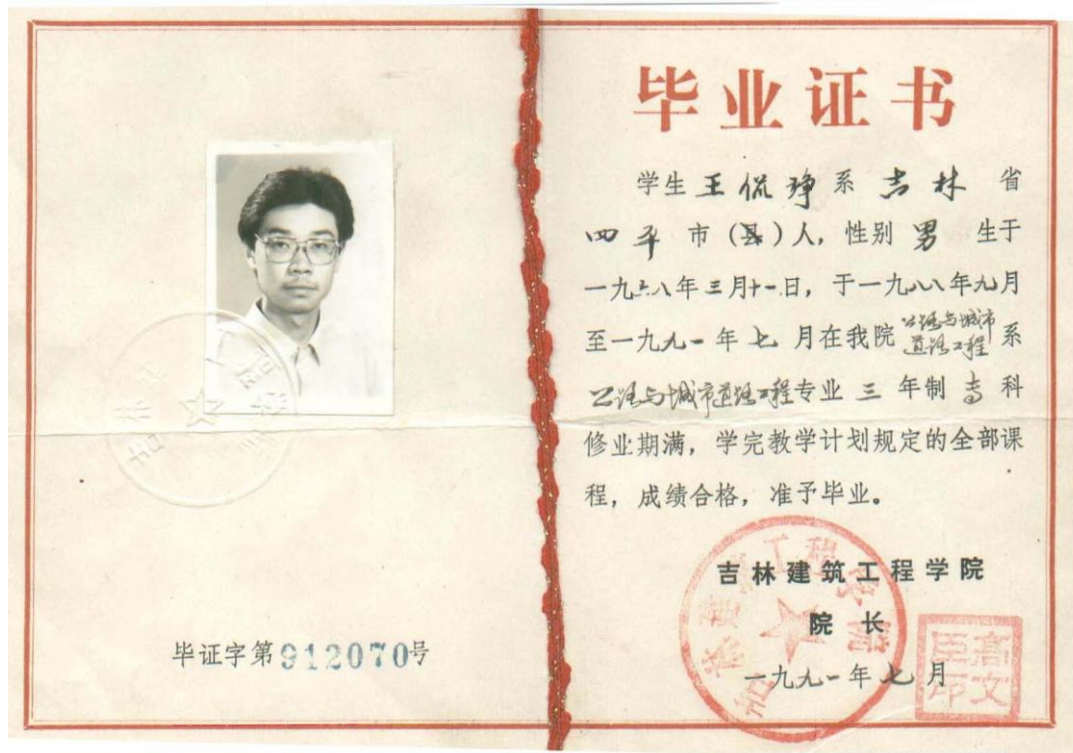 毕业证书
学生王侃琤系吉林省
四平市（县）人，性别男生于
一九六八年三月十一日，于一九八八年九月
至一九九一年七月在我院公路与城市道路工程系
公路与城市道路工程专业三年制专科
修业期满，学完教学计划规定的全部课
程，成绩合格，准予毕业。
吉林建筑工程学院
院长
一九九一年七月
毕证字第912070号